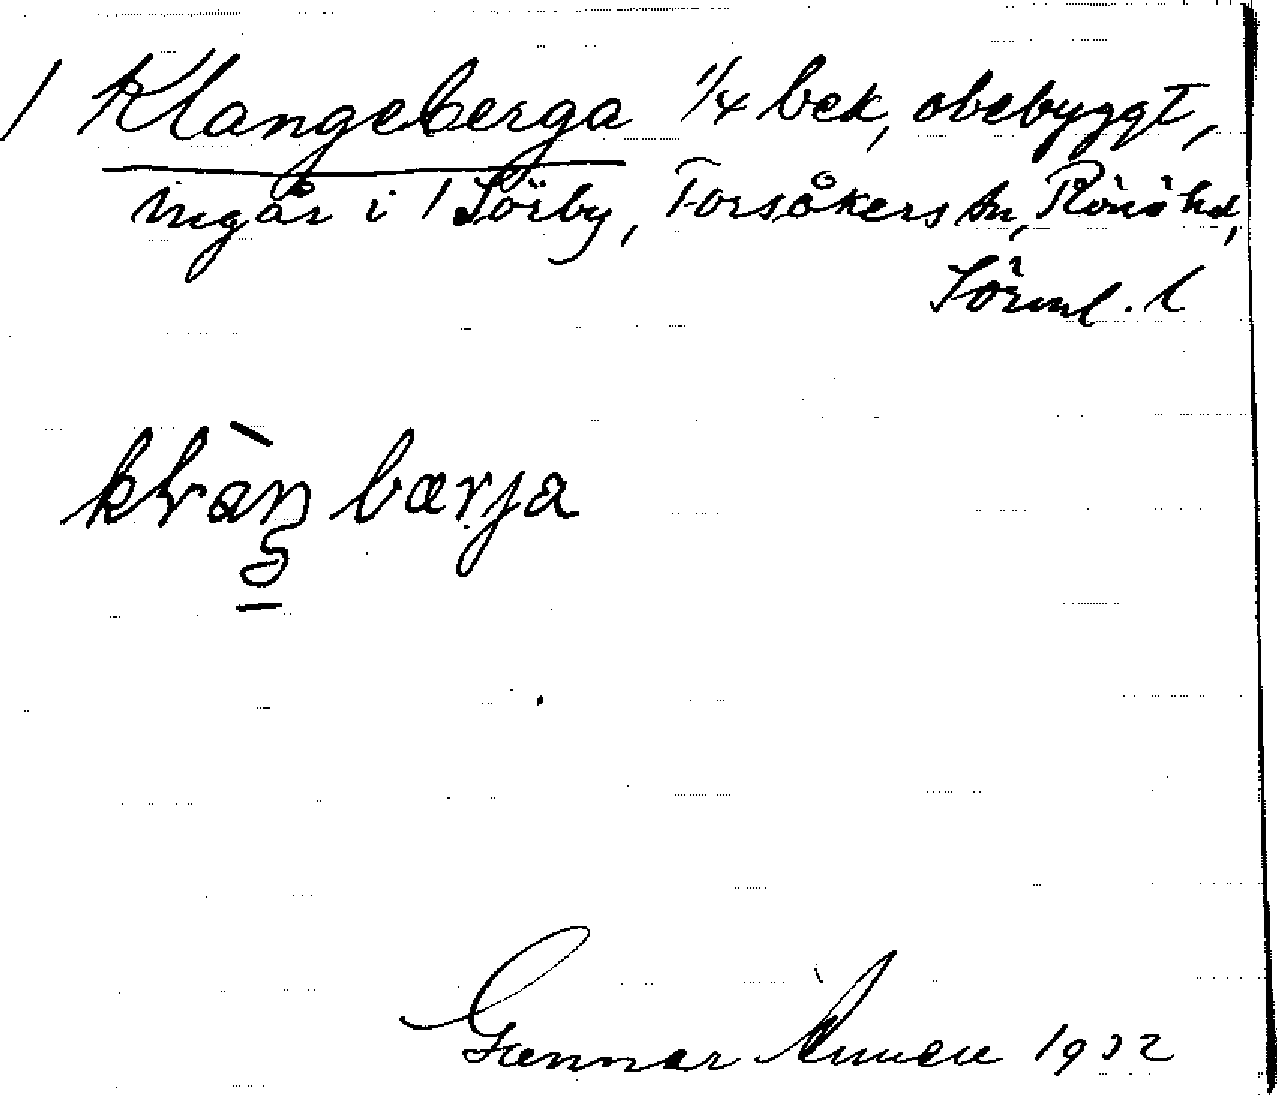 / Klangeberga 1/4 bek, obebyggt,
ingår i / Sörby, Forsåkers sn, Rönö hd,
Sörml. l
klàŋbærja
Gunnar 1932